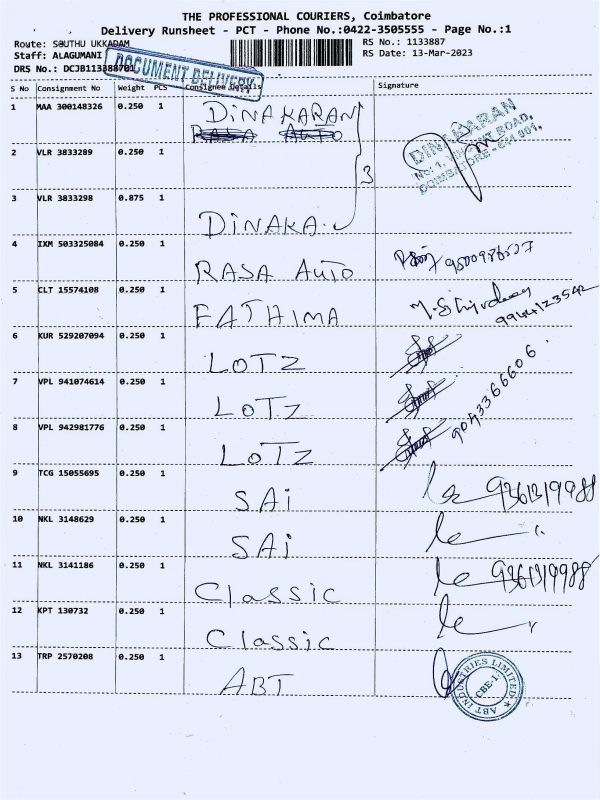 THE PROFESSIONAL COURIERS, Coimbatore
Delivery Runsheet - PCT - Phone No.:0422-3505555 - Page No.:1
Route: SOUTHU UKKADAM
RS No.: 1133887
Staff: ALAGUMANI
RS Date: 13-Mar-2023
DRS No.: DCJB113388701
DOCUMENT DELIVERY
S No Consignment No Weight PCS Consignee Details Signature
1 MAA 300148326 0.250 1 DINAKARAN
RASA AUTO
DINAKARAN
No: 1, ROAD,
COIMBATORE - 641 001.
2 VLR 3833289 0.250 1
3
3 VLR 3833298 0.875 1 DINAKA.
4 IXM 503325084 0.250 1 RASA AUTO
5 CLT 15574108 0.250 1 FATHIMA 9944123542
6 KUR 529207094 0.250 1 LOTZ
7 VPL 941074614 0.250 1 LOTZ 9043366606
8 VPL 942981776 0.250 1 LOTZ
9 TCG 15055695 0.250 1 SAi 9361319988
10 NKL 3148629 0.250 1 SAi
11 NKL 3141186 0.250 1 Classic 9361319988
12 KPT 130732 0.250 1 Classic
13 TRP 2570208 0.250 1 ABT
ABT INDUSTRIES LIMITED
CBE-1